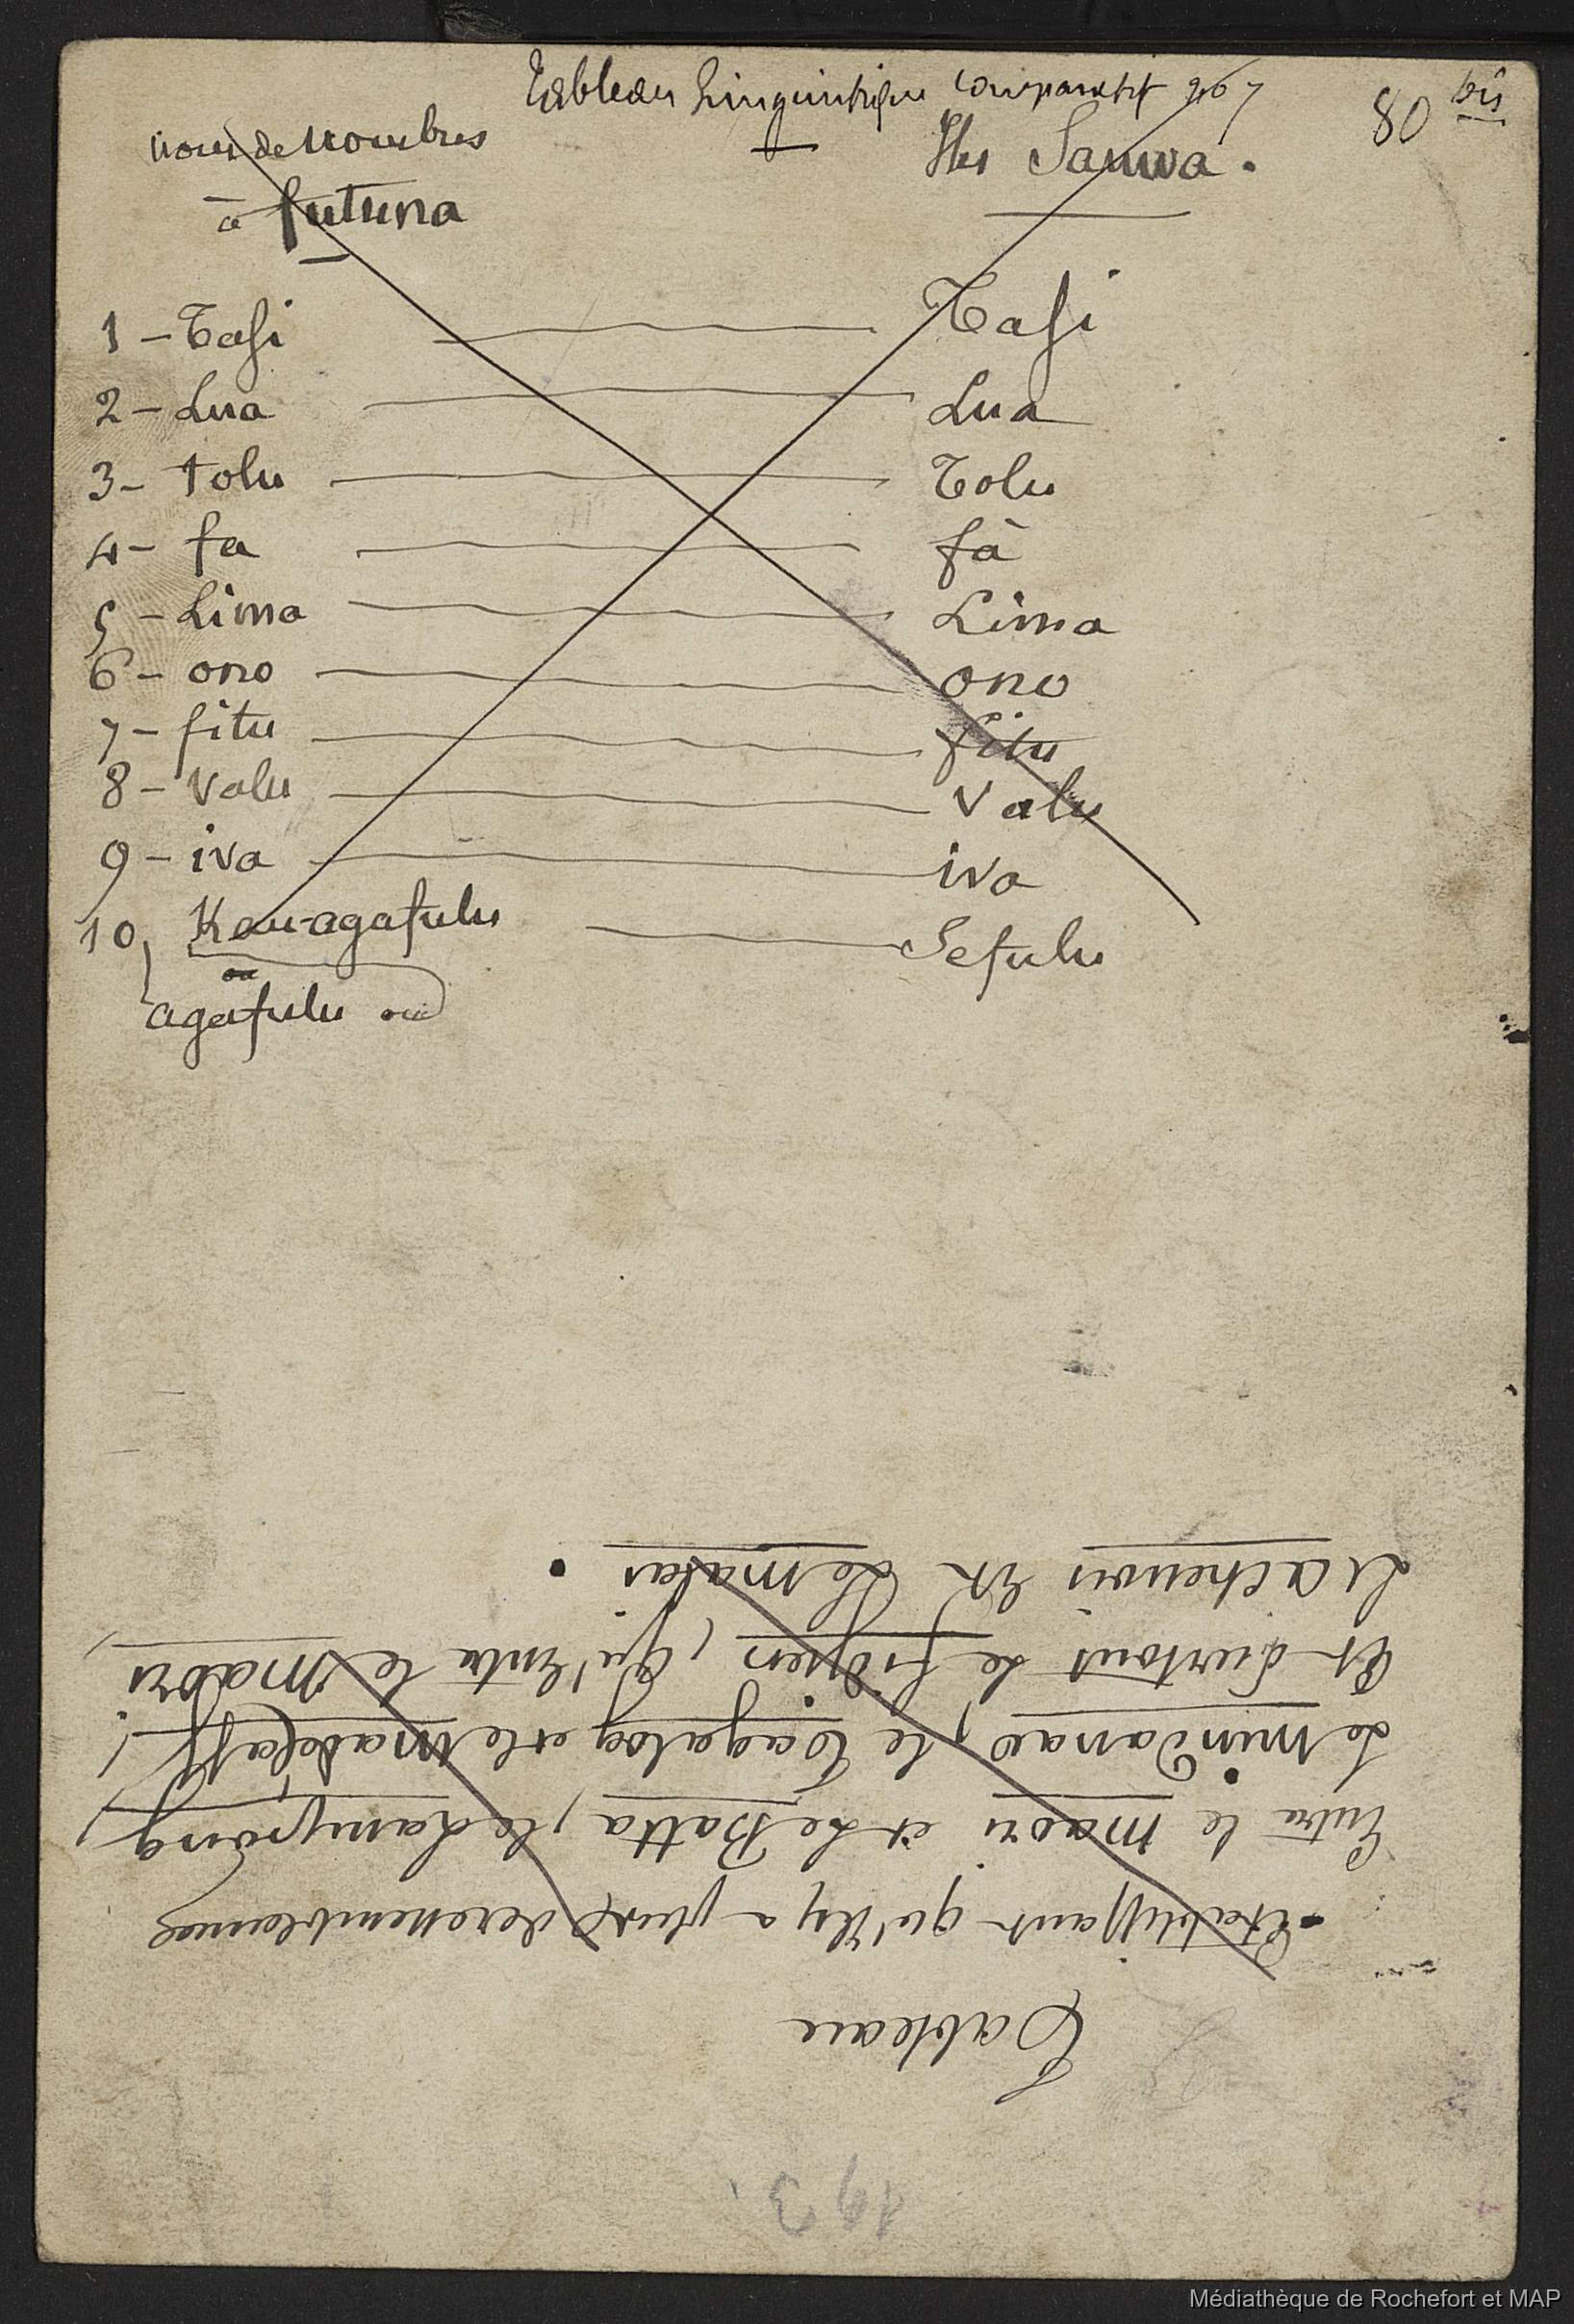 Tableau Linguistique comparatif
80 bis
Noms de Nombres
à futuna
Iles Samoa.
1 - Tasi Tasi
2 - Lua Lua
3 - tolu Tolu
4 - fa fà
5 - Lima Lima
6 - ono ono
7 - fitu fitu
8 - valu valu
9 - iva iva
10, Kau-agafulu Sefulu
ou
agafulu ou
Tableau
Etablissant qu'il y a plus de ressemblances
Entre le maori et Le Batta, le Lampong,
Le mindanao, le Tagalog et le
Et surtout le fidjien, qu'Entre le maori
L'achenois Et Le malais.
193
Médiathèque de Rochefort et MAP